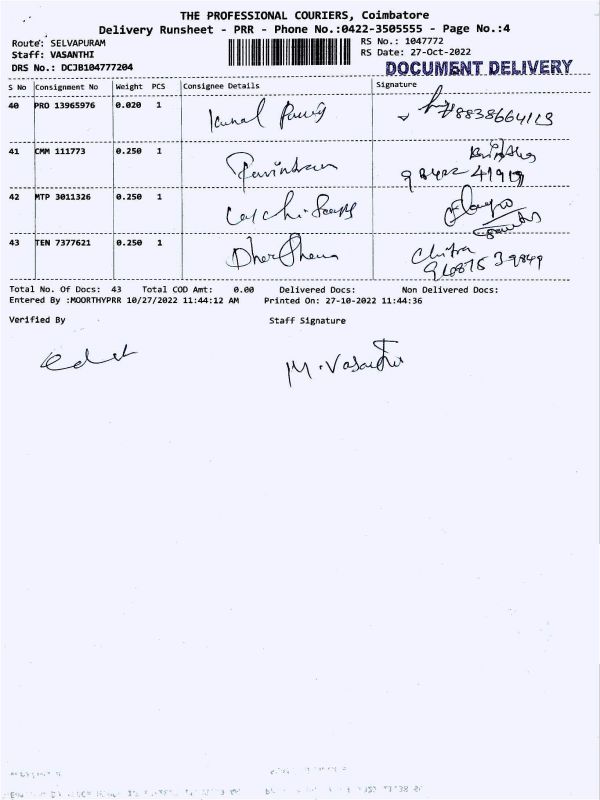 THE PROFESSIONAL COURIERS, Coimbatore
Delivery Runsheet - PRR - Phone No.:0422-3505555 - Page No.:4
Route: SELVAPURAM
RS No.: 1047772
Staff: VASANTHI
RS Date: 27-Oct-2022
DRS No.: DCJB104777204
DOCUMENT DELIVERY
S No Consignment No Weight PCS Consignee Details Signature
40 PRO 13965976 0.020 1 8838664113
41 CMM 111773 0.250 1 Ravindran
42 MTP 3011326 0.250 1
43 TEN 7377621 0.250 1 Chitra
Total No. Of Docs: 43 Total COD Amt: 0.00 Delivered Docs: Non Delivered Docs:
Entered By :MOORTHYPRR 10/27/2022 11:44:12 AM Printed On: 27-10-2022 11:44:36
Verified By Staff Signature
M. Vasanthi